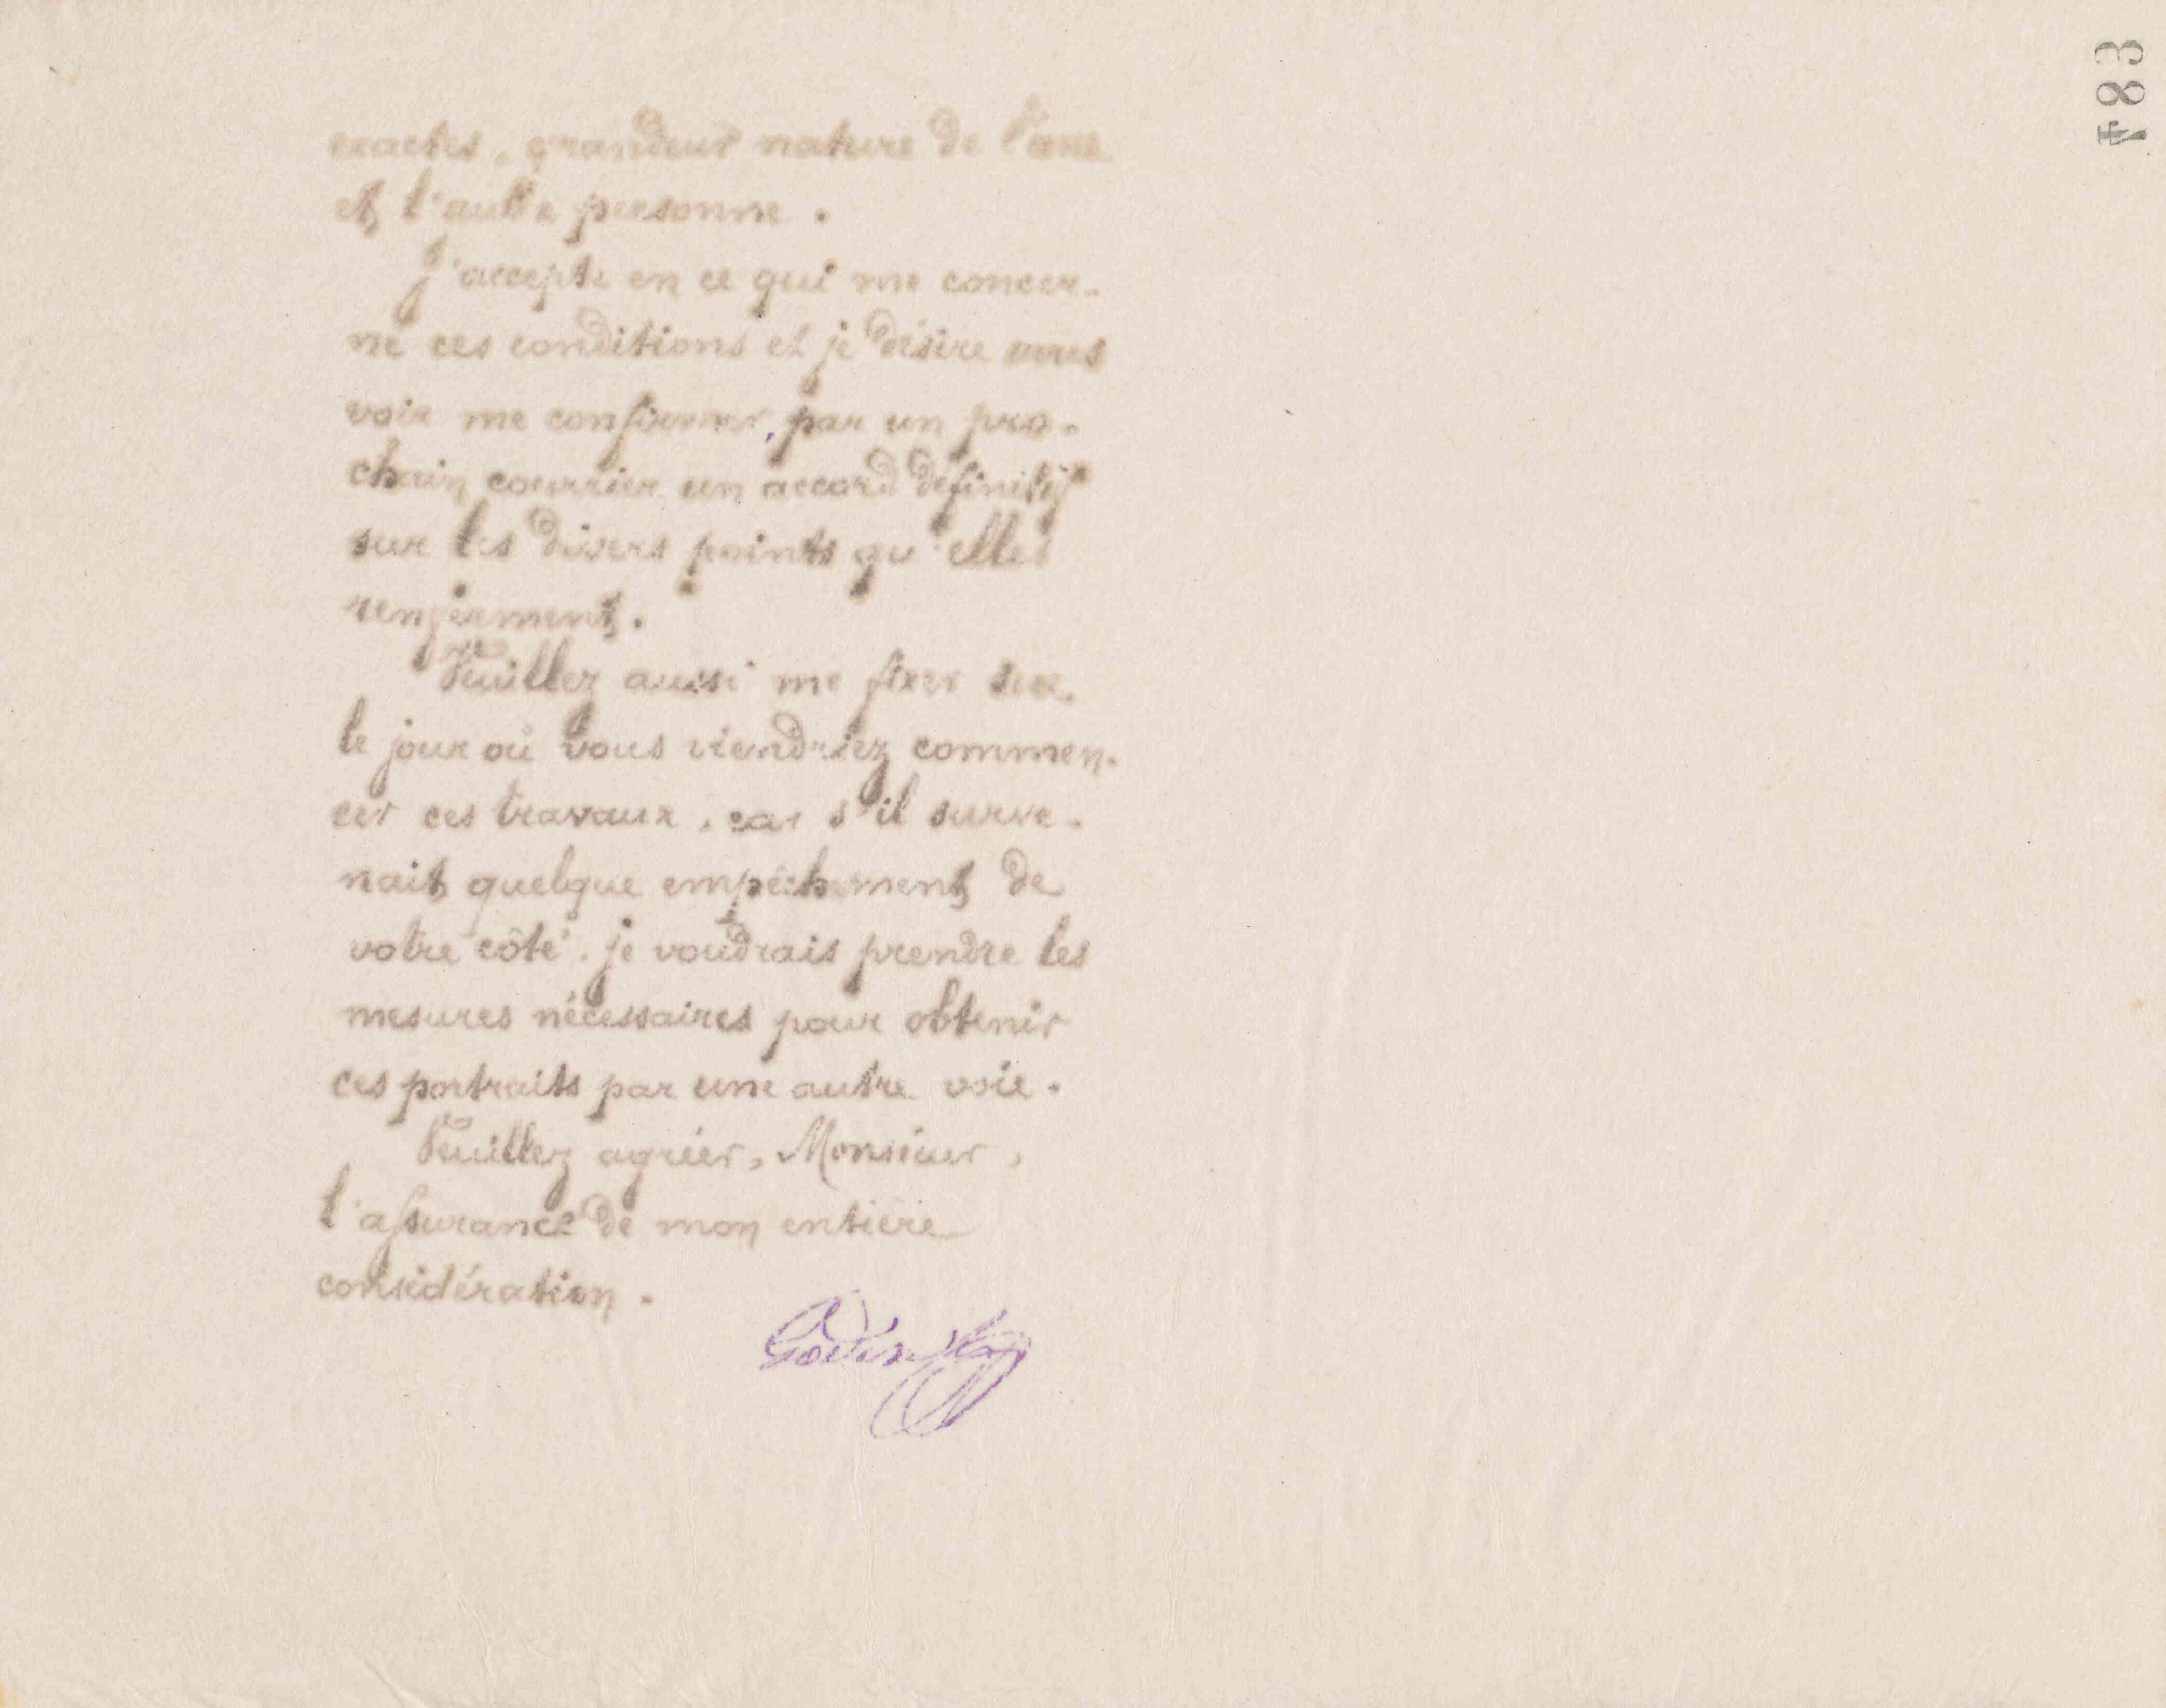 exactes, grandeur nature de l'une
et l'autre personne.
J'accepte en ce qui me concer-
ne ces conditions et je désire vous
voir me confirmer, par un pro-
chain courrier un accord définitif
sur les divers points qu'elles
renferment.
Veuillez aussi me fixer sur
le jour où vous viendriez commen-
cer ces travaux, car s'il surve-
nait quelque empêchement de
votre côté, je voudrais prendre les
mesures nécessaires pour obtenir
ces portraits par une autre voie.
Veuillez agréer, Monsieur,
l'assurance de mon entière
considération.
Godin